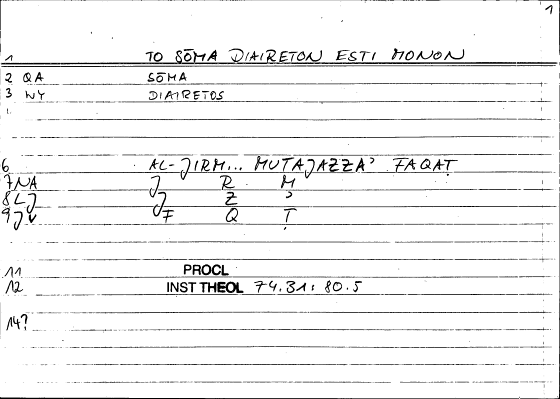 1
1 TO SŌMA DIAIRETON ESTI MONON
2 QA SŌMA
3 WY DIAIRETOS
6 AL-JIRM... MUTAJAZZAʾ FAQAṬ
7 NA J R M
8 LJ J Z ʾ
9 JV F Q Ṭ
11 PROCL
12 INST THEOL 74.31: 80.5
14?